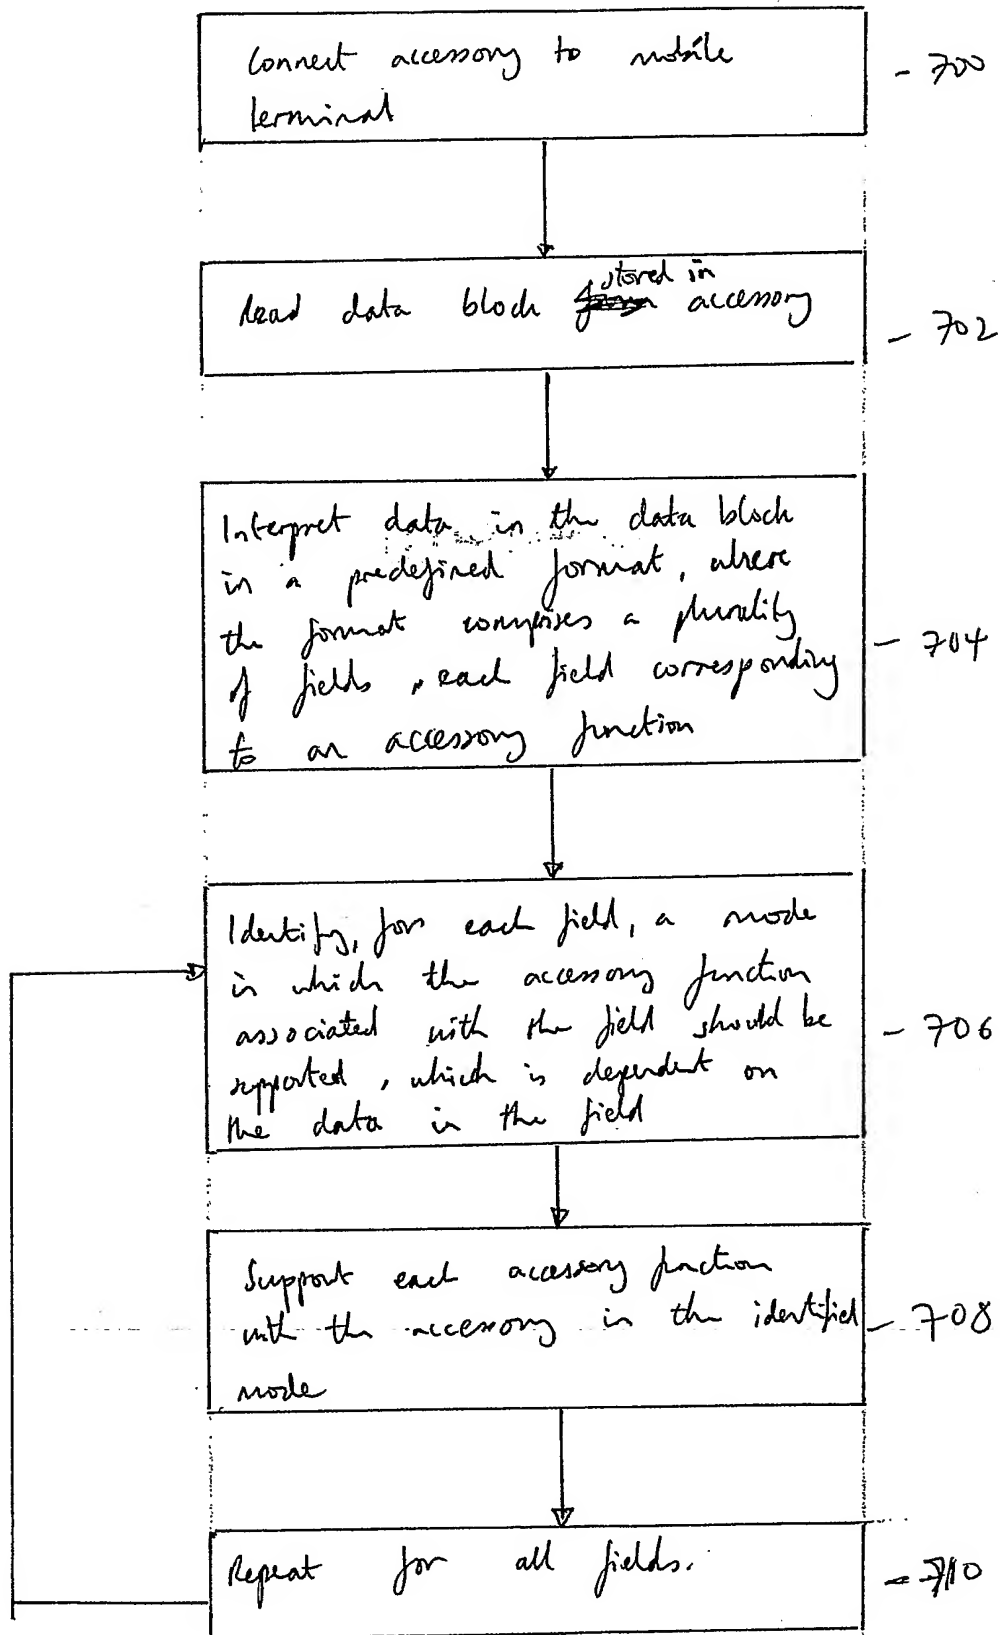 Connect accessory to mobile
terminal
- 700
stored in
Read data block accessory
- 702
Interpret data in the data block
in a predefined format, where
the format comprises a plurality
of fields, each field corresponding
to an accessory function
- 704
Identify, for each field, a mode
in which the accessory function
associated with the field should be
supported, which is dependent on
the data in the field
- 706
Support each accessory function
with the accessory in the identified
mode
- 708
Repeat for all fields.
- 710